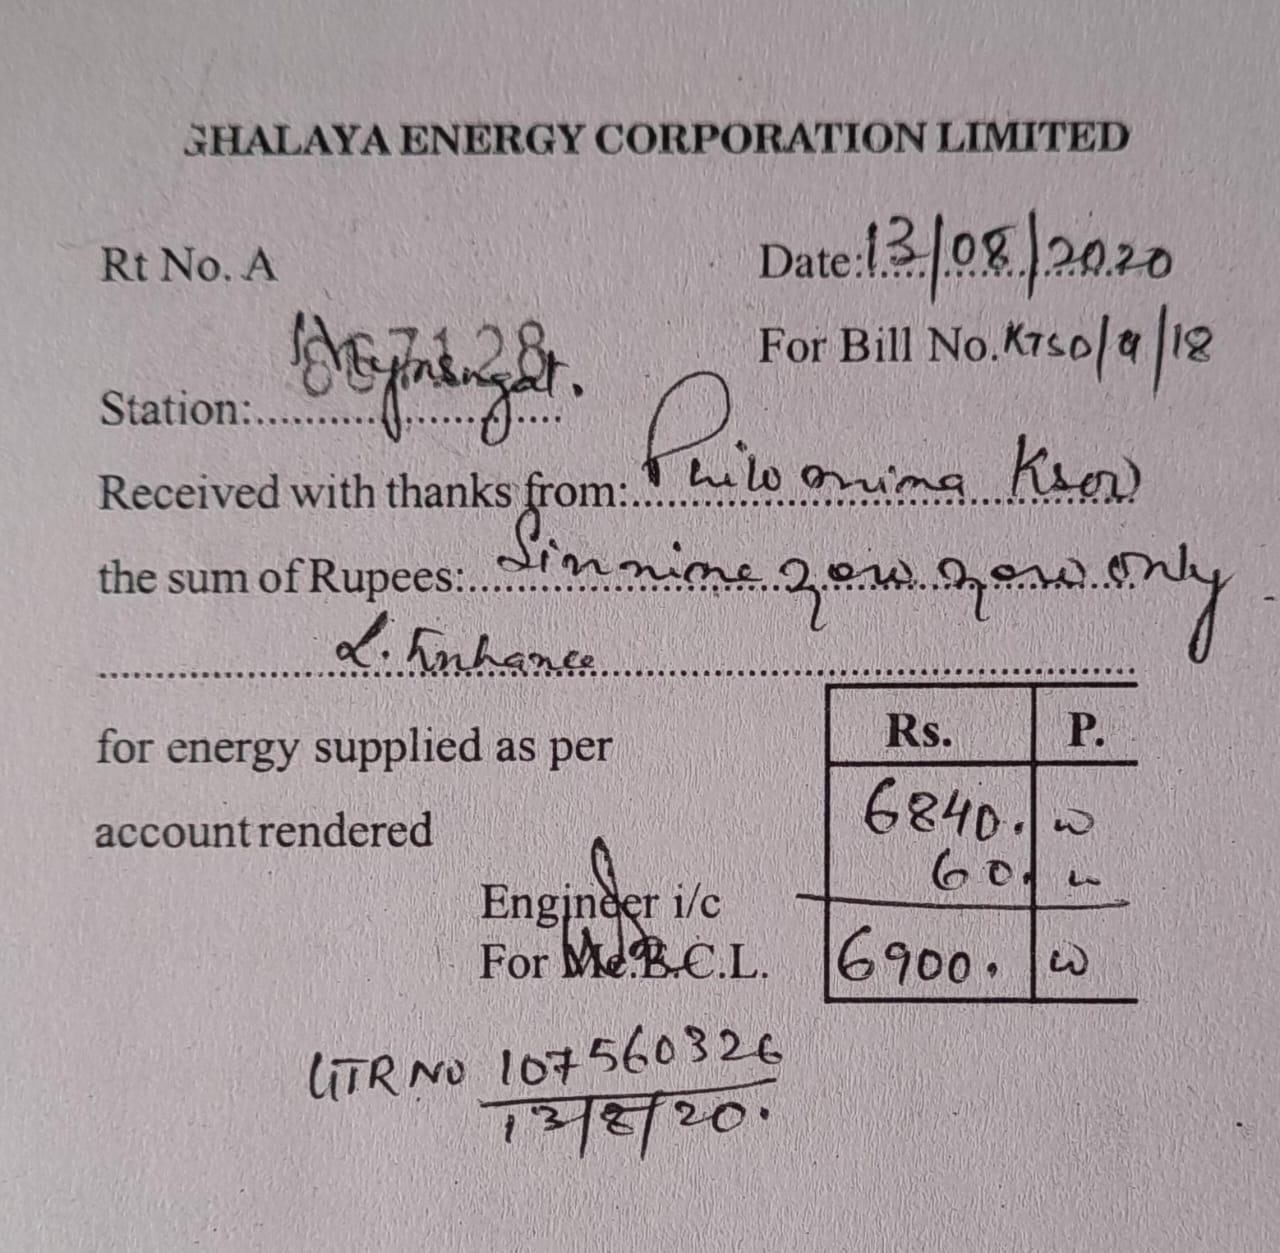 GHALAYA ENERGY CORPORATION LIMITED
Rt No. A
Date: 13/08/2020
867128
For Bill No. KTSO/9/18
Station:
Received with thanks from: Philo
the sum of Rupees: Six nine zero zero only
L. Enhance
for energy supplied as per
account rendered
Rs. P.
6840.
60.
6900.
Engineer i/c
For Me.E.C.L.
UTR NO 107560326
13/8/20.